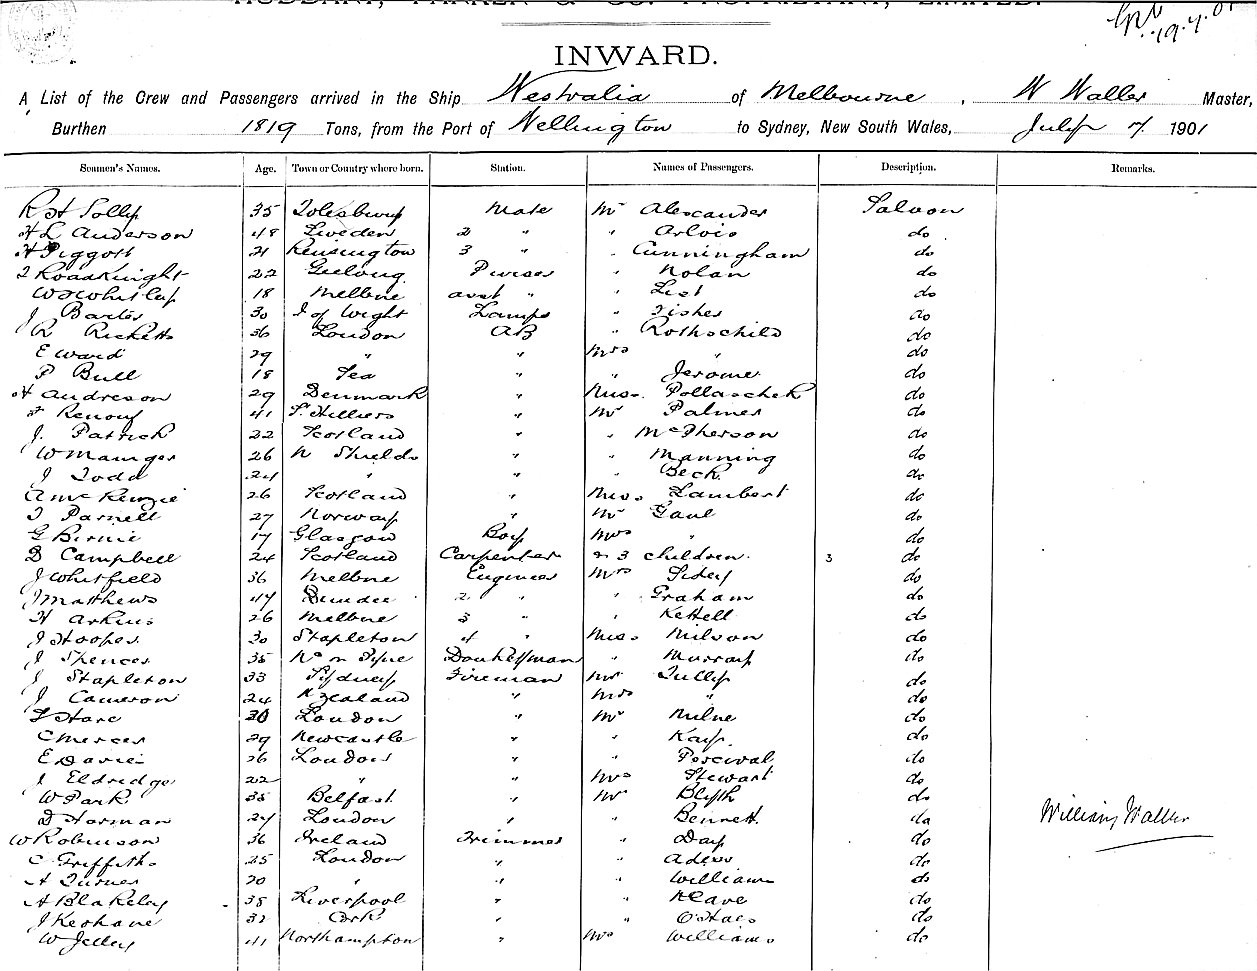 HUDDART, PARKER & CO. PROPRIETARY, LIMITED.
19.7.01
INWARD.
A List of the Crew and Passengers arrived in the Ship Westralia of Melbourne, W Waller Master,
Burthen 1819 Tons, from the Port of Wellington to Sydney, New South Wales, July 7 1901
Seamen's Names. Age. Town or Country where born. Station. Names of Passengers. Description. Remarks.
R H Solly 35 Tolesbury Mate Mr Alexander Saloon
H L Anderson 48 Sweden 2 " " Arlois do
H Piggott 21 Kensington 3 " " Cunningham do
Roadknight 22 Geelong Purser " Nolan do
18 Melbne asst " " List do
J Bartes 30 I of Wight Lamps " Fisher do
R Ricketts 36 London AB " Rothschild do
E Ward 29 " " Mrs " do
P Bull 18 Sea " " Jerome do
H Andreson 29 Denmark " Miss Pollaschek do
F Renouf 41 St Helliers " Mr Palmer do
J. Patrick 22 Scotland " " McPherson do
W Mauger 26 N Shields " " Manning do
J Todd 24 " " " Beck do
A McKenzie 26 Scotland " Miss Lambert do
T Parnell 27 Norway " Mr Gaul do
G Birnie 17 Glasgow Boy Mrs " do
D Campbell 24 Scotland Carpenter " & 3 children. 3 do
J Whitfield 36 Melbne Engineer Mrs Sidey do
J Matthews 47 Dundee 2 " " Graham do
H Arkins 26 Melbne 3 " " Kettell do
J Hooper 30 Stapleton 4 " Miss Milson do
J Spences 35 Nc on Tyne Donkeyman " Murray do
J Stapleton 33 Sydney Fireman Mr Tully do
J Cameron 24 N Zealand " Mrs " do
Hare 30 London " Mr Milne do
C Mercer 29 Newcastle " " Kay do
E Davie 26 London " " Percival do
J Eldridge 22 " " Mrs Stewart do
W Park 35 Belfast " Mr Blyth do
D Harman 27 London " " Bennett do William Waller
W Robinson 36 Ireland Trimmer " Day do
C Griffiths 25 London " " do
A Turner 20 " " " William do
A Blakeley 38 Liverpool " " Keave do
J Keohane 32 Cork " " O'Hara do
W Jelley 41 Northampton " Mrs Williams do